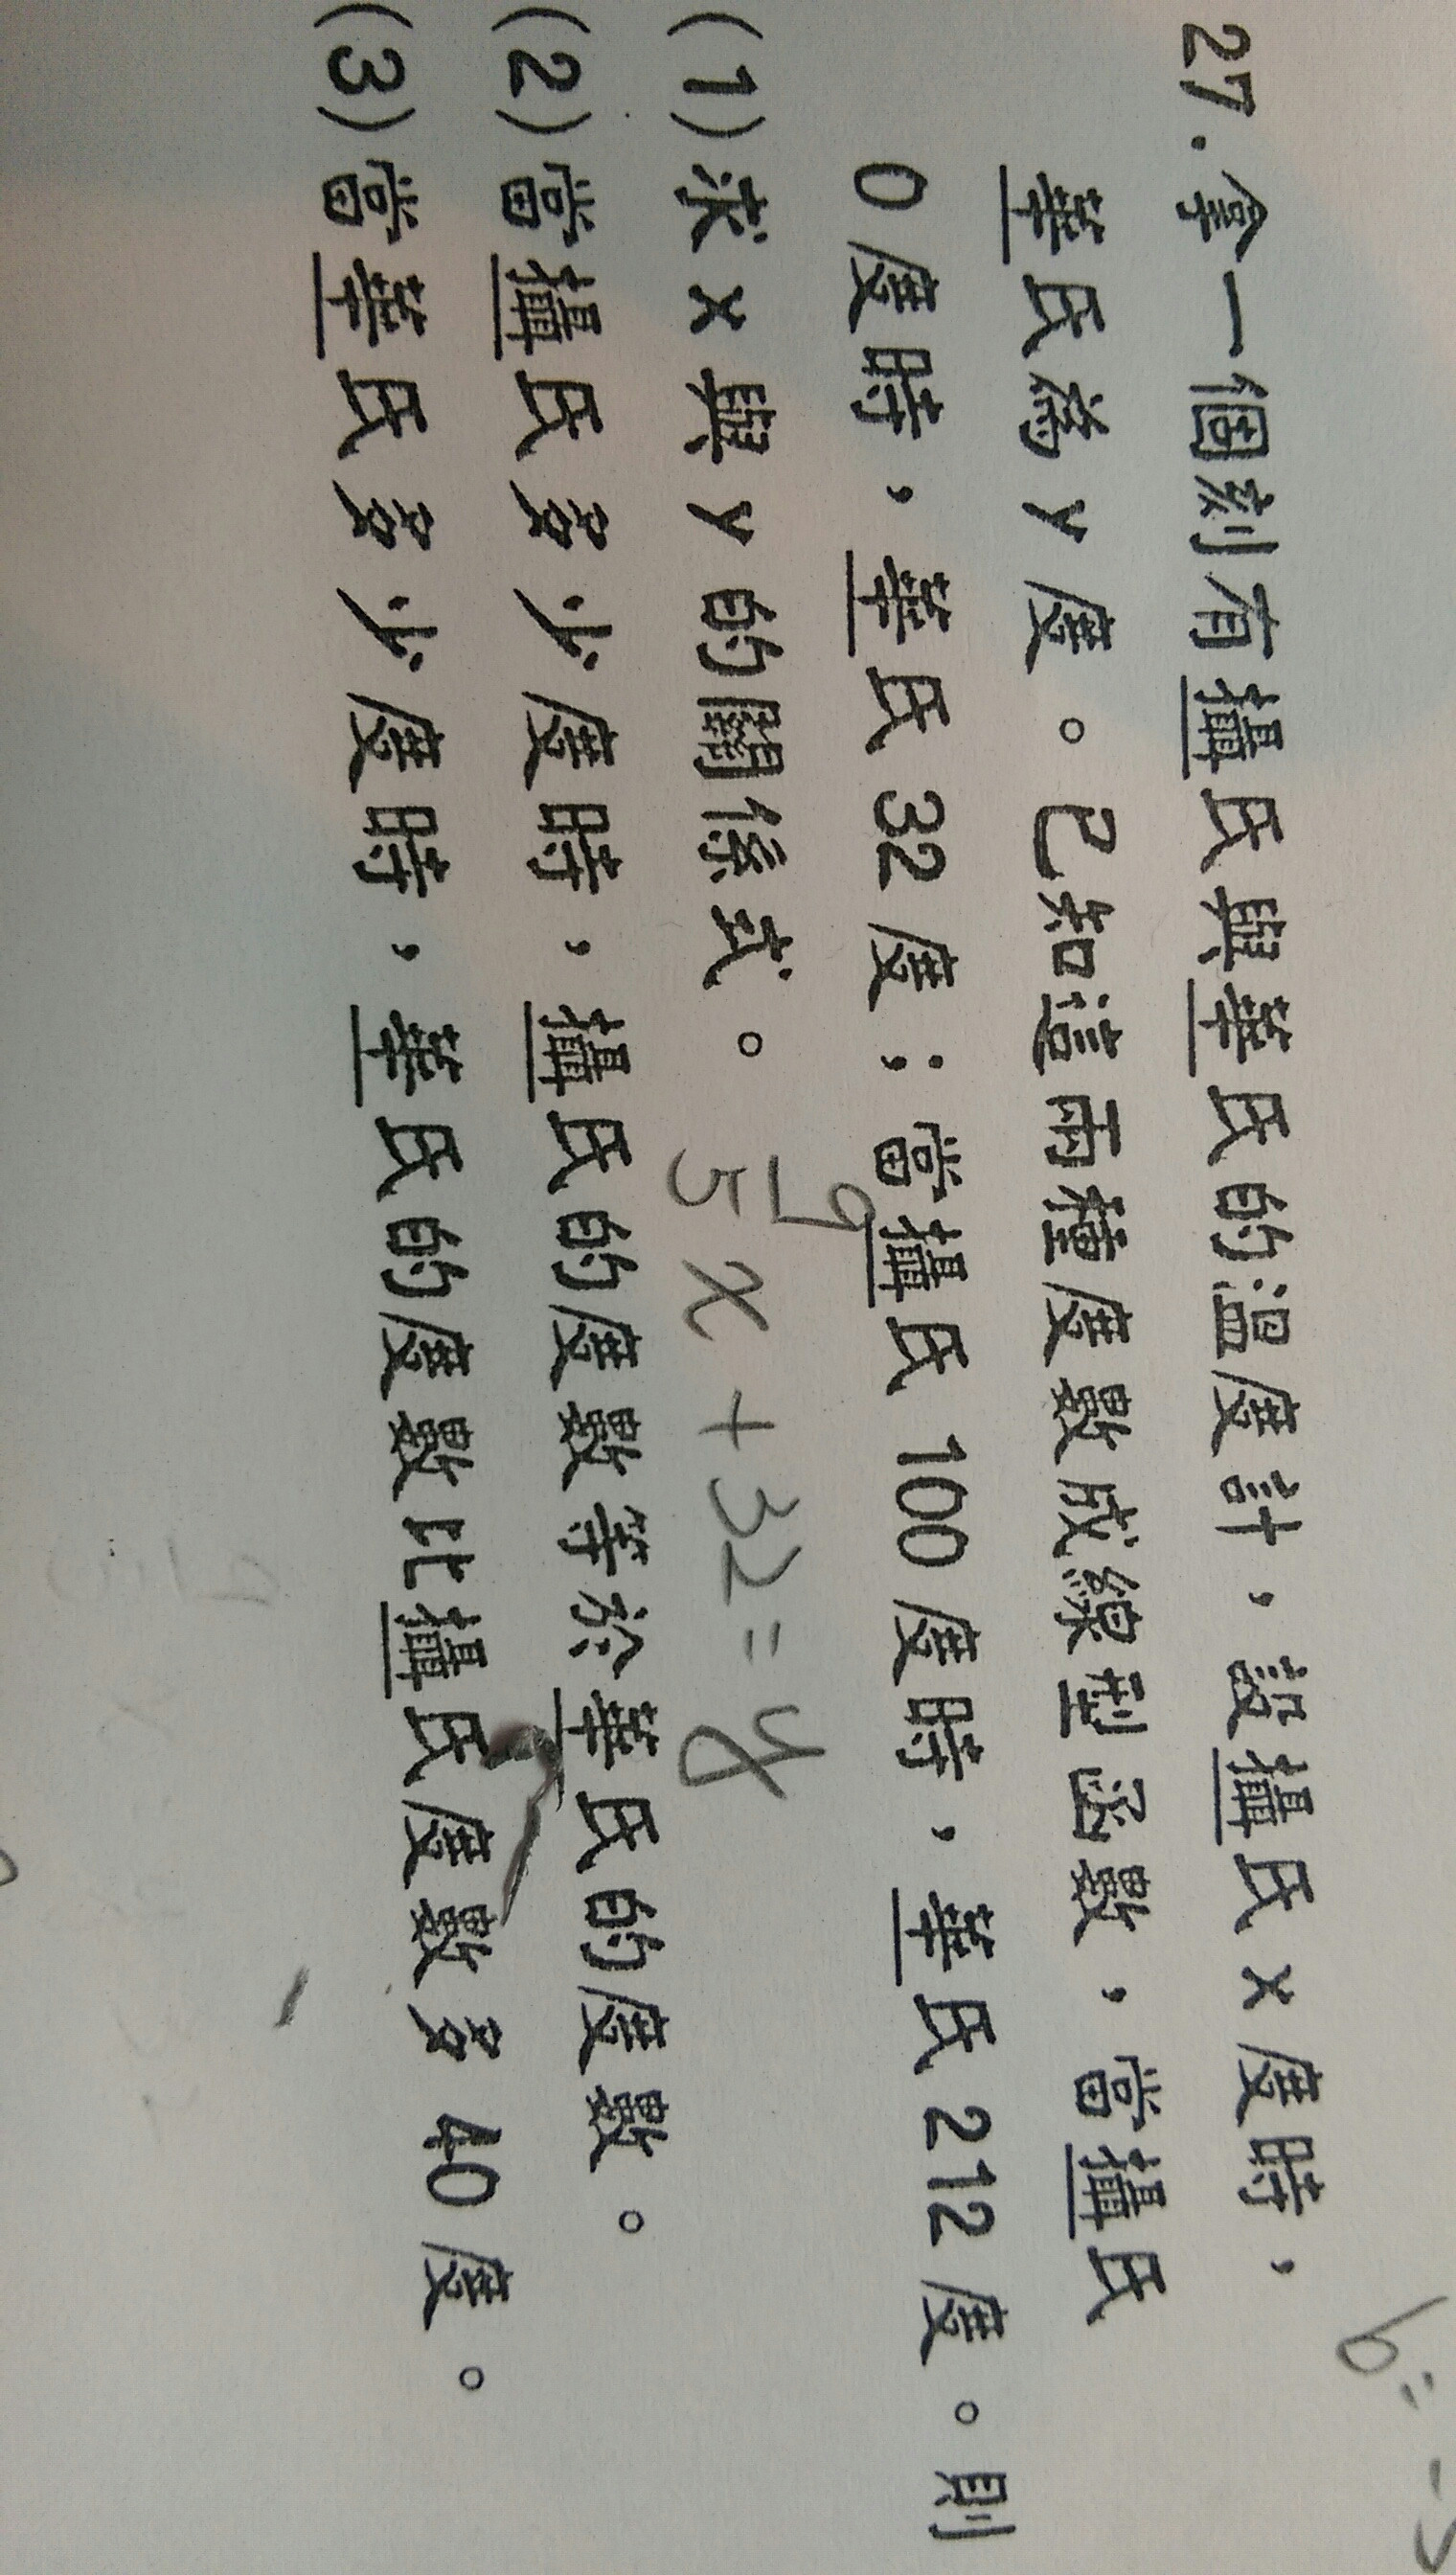 27. 拿一個刻有攝氏與華氏的溫度計，設攝氏 x 度時，
華氏為 y 度。已知這兩種度數成線型函數，當攝氏
0 度時，華氏 32 度；當攝氏 100 度時，華氏 212 度。則
(1)求 x 與 y 的關係式。 9/5 x + 32 = y
(2)當攝氏多少度時，攝氏的度數等於華氏的度數。
(3)當華氏多少度時，華氏的度數比攝氏度數多 40 度。
b =